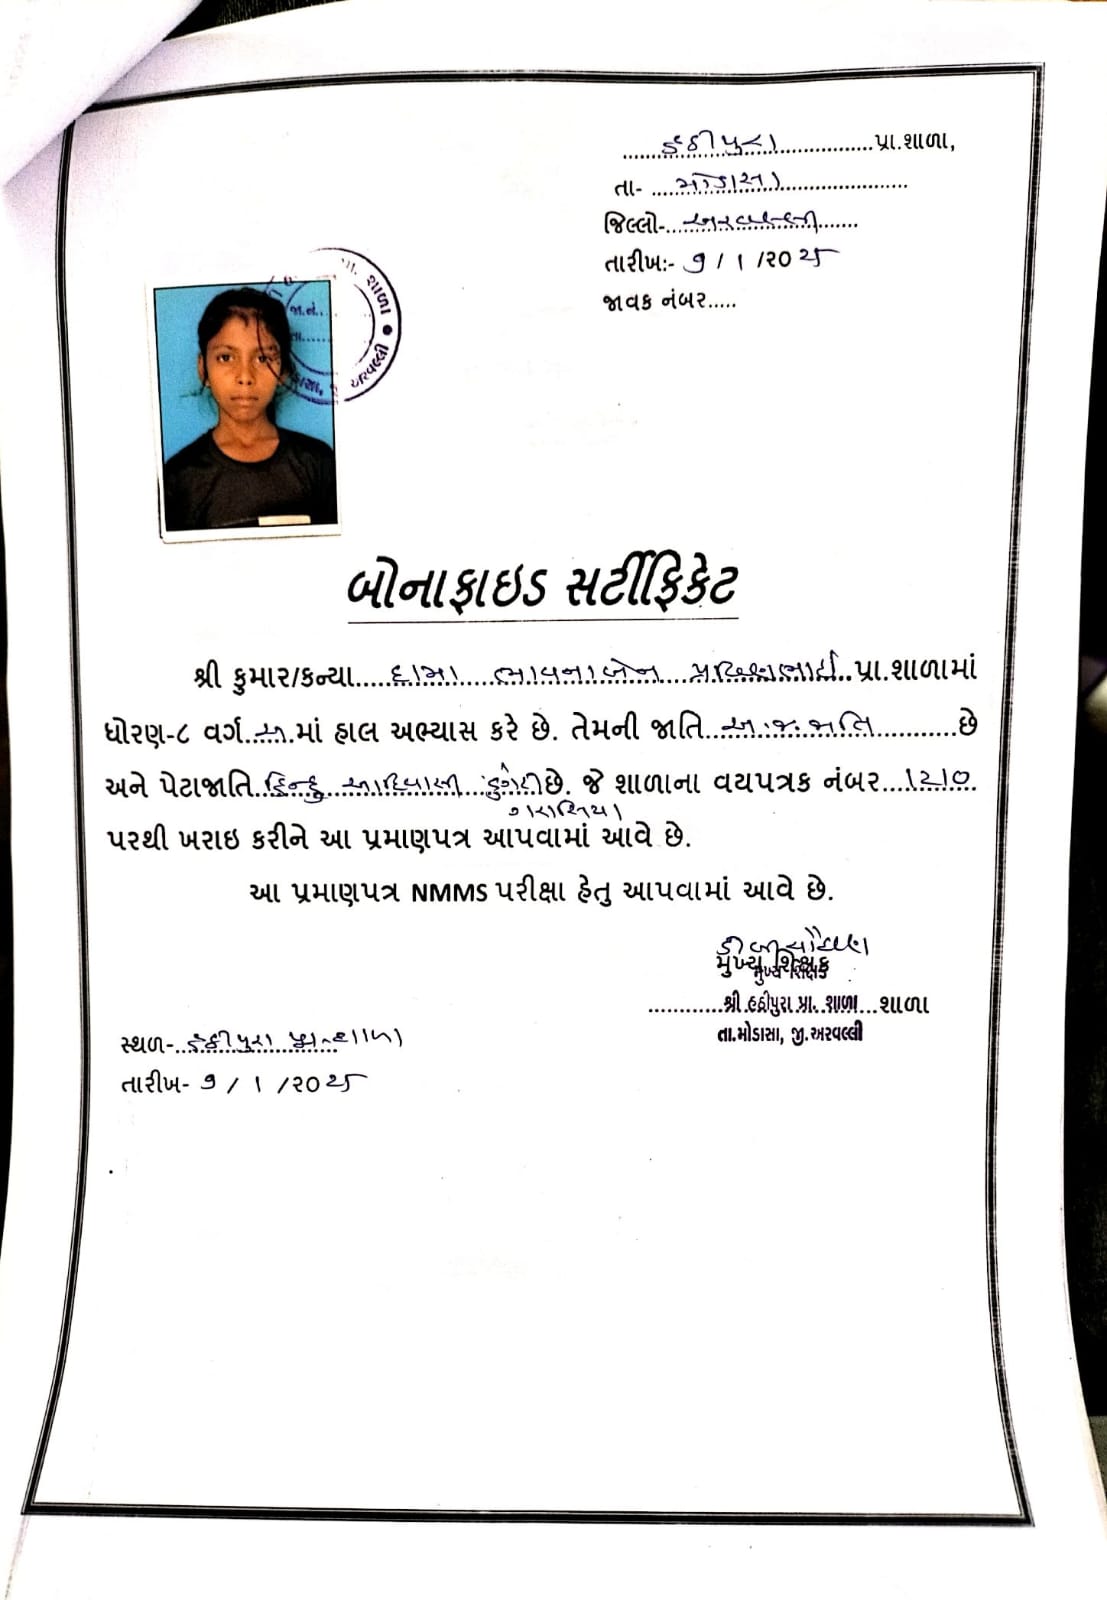 હઠીપુરા પ્રા.શાળા,
તા- મોડાસા
જિલ્લો- અરવલ્લી
તારીખ:- ૭/૧/૨૦૨૫
જાવક નંબર.....
પ્રા. શાળા
જા.નં.
અરવલ્લી
બોનાફાઇડ સર્ટીફિકેટ
શ્રી કુમાર/કન્યા ડામા ભાવનાબેન પ્રવિણભાઈ પ્રા.શાળામાં
ધોરણ-૮ વર્ગ અ માં હાલ અભ્યાસ કરે છે. તેમની જાતિ અ.જ.જાતિ છે
અને પેટાજાતિ હિન્દુ આદિવાસી ડુંગરી છે. જે શાળાના વયપત્રક નંબર ૧૨૧૦
ગરાસિયા
પરથી ખરાઇ કરીને આ પ્રમાણપત્ર આપવામાં આવે છે.
આ પ્રમાણપત્ર NMMS પરીક્ષા હેતુ આપવામાં આવે છે.
મુખ્ય શિક્ષક
મુખ્ય શિક્ષક
શ્રી હઠીપુરા પ્રા. શાળા શાળા
તા.મોડાસા, જી.અરવલ્લી
સ્થળ- હઠીપુરા પ્રા.શાળા
તારીખ- ૭/૧/૨૦૨૫